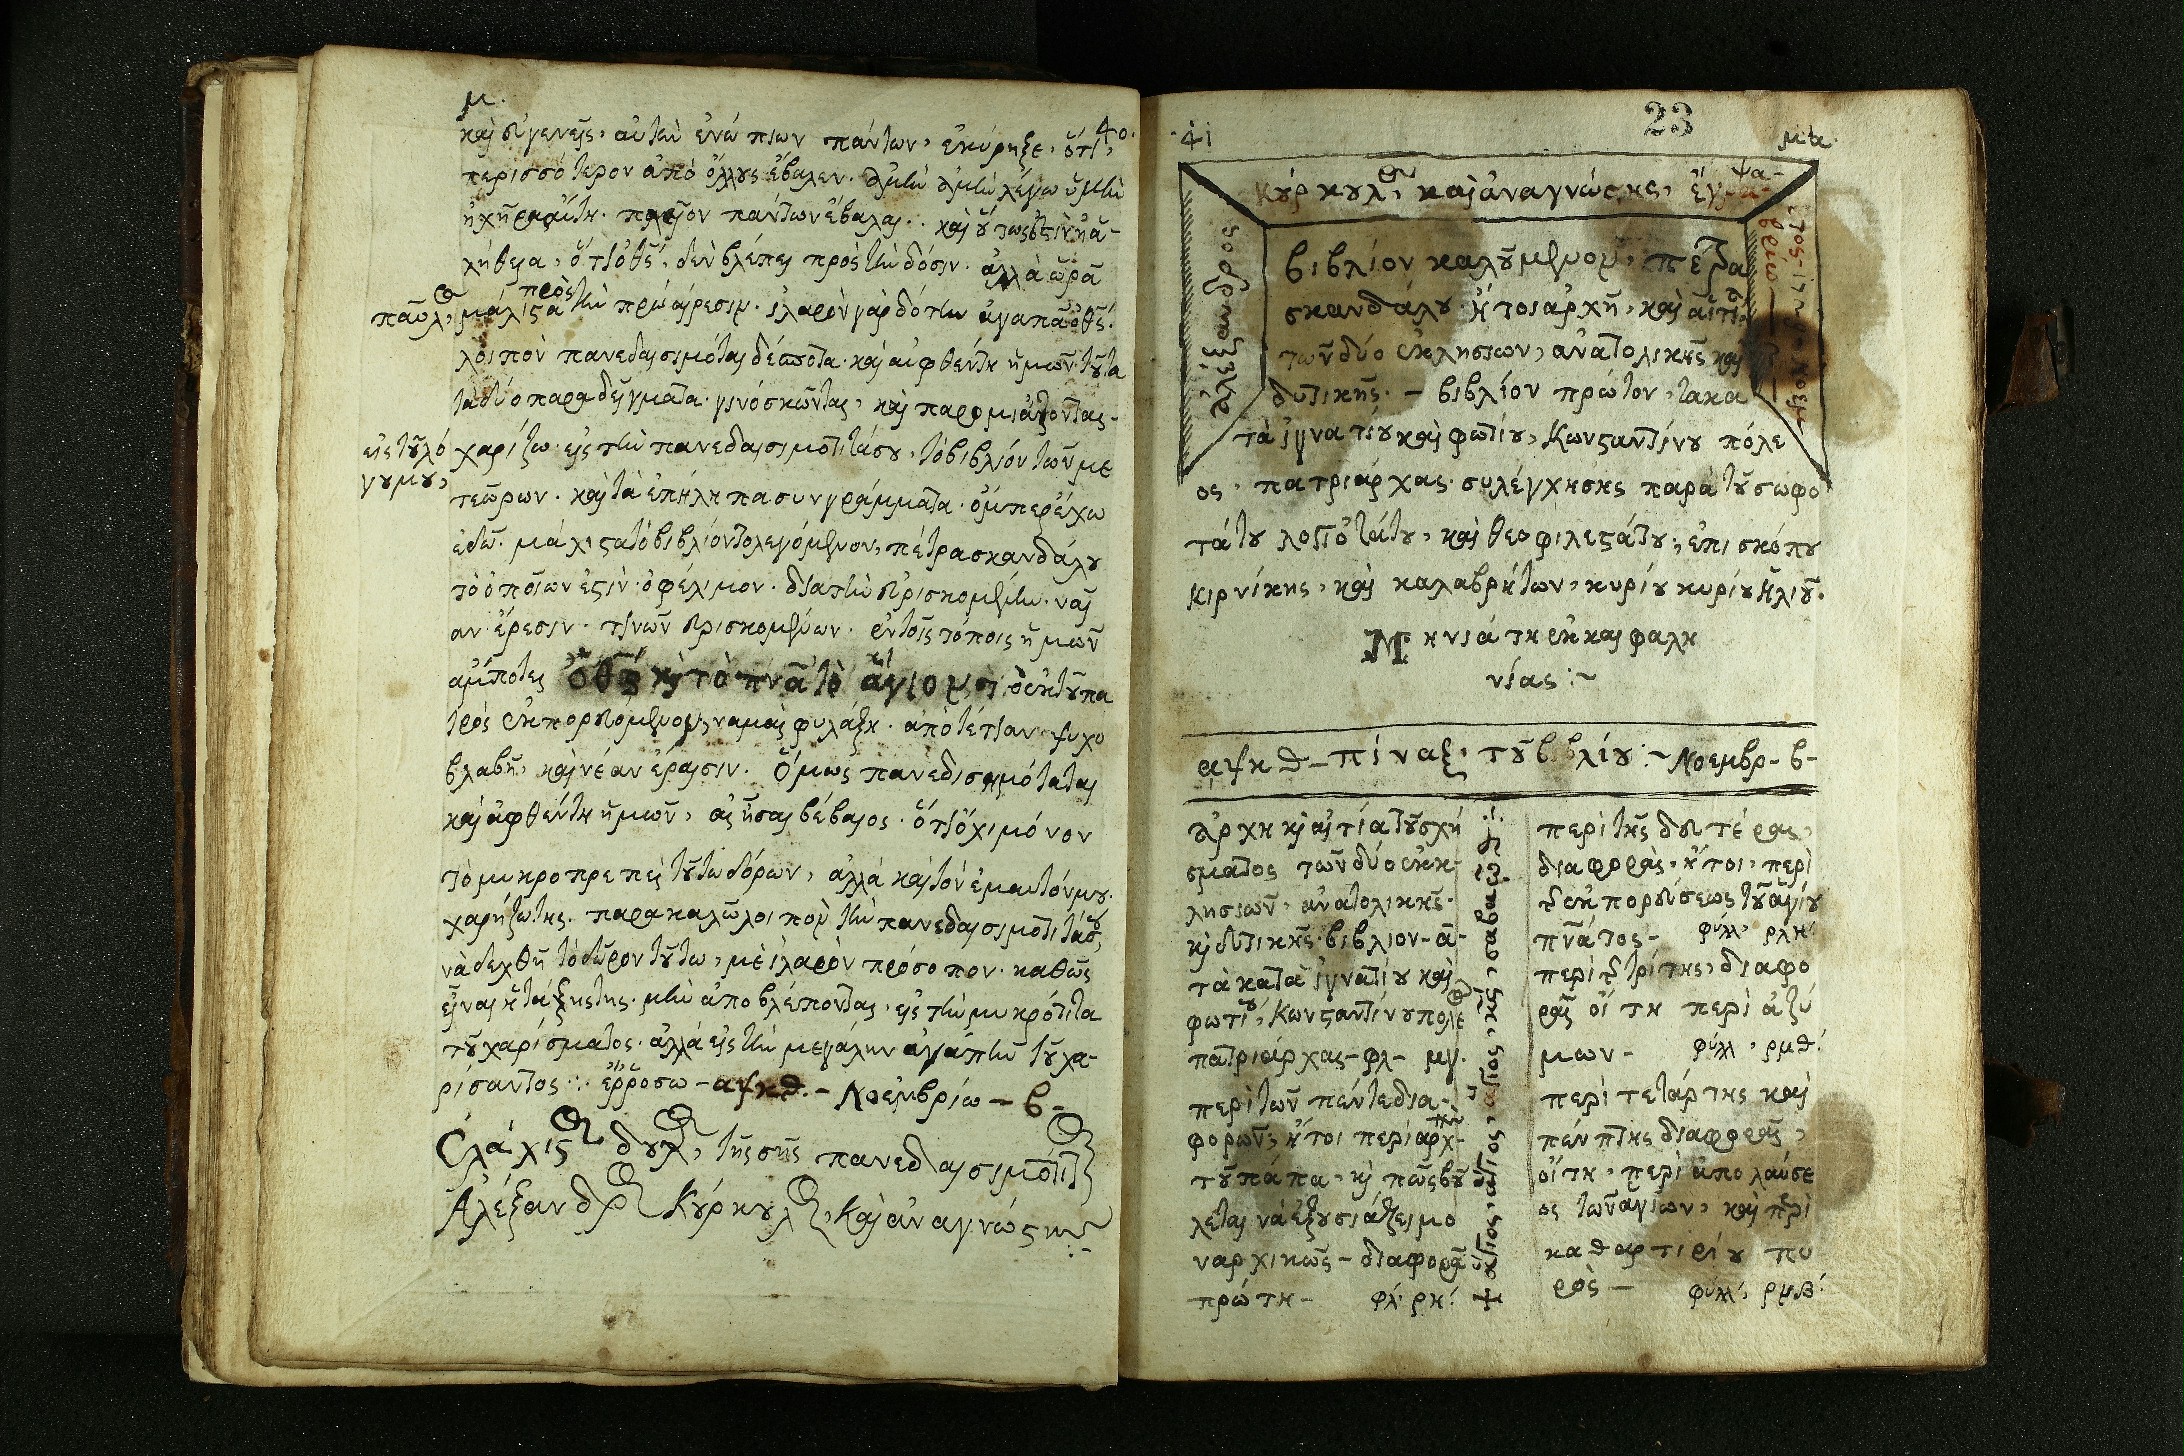 μ.
40.
καὶ συγενεῖς, αὐτὴ ἐνώπιων πάντων, ἐκύρηξε, ὅτι,
περισσότερον ἀπὸ ὅλλους ἔβαλεν. ἀμὴν ἀμὴν λέγω ὑμῖν
πλεῖον πάντων ἔβαλαι. καὶ οὕτως ἐστὶν ἡ ἀ-
λήθεια, ὅτι ὁ θς, δὲν βλέπει πρὸς τὴν δόσιν. ἀλλὰ ὡρᾶ
παῦλος, μάλιστα πρὸς τὴν πρώαίρεσιν. ἱλαρὸν γὰρ δότην ἀγαπᾶ ὁ θς.
λοιπὸν πανεδαισιμόται δέσποτα. καὶ αὐφθέντη ἡμῶν. τοῦτα
τὰ δύο παραδείγματα. γινόσκωντας, καὶ παρομιάζοντας-
εἰς τοῦ λό
γου μου,
χαρίζω εἰς τὴν πανεδαισιμοτιτάσου, τὸ βιβλίον τῶν με
τεώρων. καὶ τὰ ἐπήληπα συνγράμματα. ὁμπερ ἔχω
ἐδῶ. μάλιστα τὸ βιβλίον τὸ λεγόμενον, πέτρα σκανδάλου
τὸ ὁποῖων ἐστὶν ὀφέλιμον. διὰ τὴν εὑρισκομένην. νέαν
αν ἔρεσιν. τινῶν εὑρισκομένων. ἐν τοῖς τόποις ἡμῶν
ἀμποτες ὁ θς καὶ τὸ πνᾶ τὸ ἅγιον τὸ ἐκ τοῦ πα
τρὸς ἐκπορευόμενον, να μας φυλάξη. ἀπὸ τέτιαν ψυχο
βλαβῆ, καὶ νέαν ἔραισιν. Ὅμως πανεδισιμότατας
καὶ ἀφθέντη ἡμῶν, ἀς ἦσαι βέβαιος. ὅτι ὄχι μόνον
τὸ μικροπρεπὲς τοῦτω δόρων, ἀλλὰ καὶ τὸν ἐμαυτόν μου.
χαρήζω της. παρακαλῶ λοιπὸν τὴν πανεδαισιμοτιτάσου,
νὰ δεχθῆ τὸ δῶρον τοῦτω, μὲ ἱλαρὸν πρόσοπον. καθὼς
εἶναι ἡ τάξις της. μὴν ἀποβλέποντας, εἰς τὴν μικρότιτα
τοῦ χαρίσματος. ἀλλὰ εἰς τὴν μεγάλην ἀγάπην τοῦ χα-
ρίσαντος :. ἔρρωσω - αψκθ. - Νοεμβρίω - β -
Ἐλάχιστος δουλος, τῆς σῆς πανεδλαισιμότιτος
Ἀλέξανδρος Κύρκουλος, καὶ ἀναγνώστης
41
23
μα.
Κύρκουλος, καὶ ἀναγνώστης, ἔγρα-
ψα-
ἀλέξανδρος
βιβλίον καλούμενον, πέτρα
σκανδάλου. ἤτοι ἀρχῆ, καὶ αἰτία
τῶν δύο ἐκλησιων, ἀνατολικῆς καὶ
δυτικῆς. - βιβλίον πρῶτον, τὰ κα
τὰ ἰγνατίου καὶ φωτίου, Κωνσταντίνου πόλε
ος, πατριάρχας. συλέγχησης παρὰ τοῦ σωφο
τάτου λογιοτάτου, καὶ θεοφιλεστάτου, ἐπισκόπου
κιρνίκης, καὶ καλαβρήτων, κυρίου κυρίου Ἠλιοῦ.
Μηνιάτη ἐκ καιφαλη
νίας :~
αψκθ - πίναξ, τοῦ βιβλίου :~ Νοεμβρ - β -
Ἀρχη καὶ αἰτία τοῦ σχή
σματος τῶν δύο ἐκκ-
λησιῶν, ἀνατολικῆς.
καὶ δυτικῆς. βιβλιον - ᾱ -
τὰ κατὰ ἰγνατίου καὶ
φωτίου, Κωνσταντίνουπολε
πατριάρχας - φλ - μγ.
περὶ τῶν πέντε δια-
φορῶν, ἤτοι περὶ ἀρχ-
τοῦ πάπα, καὶ πῶς βού
λεται νὰ ἐξουσιάζει μο
ναρχικῶς - διαφορᾶ
πρώτη - φλ. ρκ.
ἅγιος, ἅγιος, ἅγιος, κς, σαβαώθ :
περὶ τῆς δευτέρας,
διαφορὰς, ἤτοι, περὶ
τῆς ἐκπορεύσεως τοῦ ἁγίου
πνάτος - φύλλ, ρλη.
περὶ τῆς τρίτης, διαφο
ρᾶς οἵτη περὶ ἀζύ
μων - φύλλ, ρμθ.
περὶ τετάρτης καὶ
πέμπτης διαφορᾶς,
οἵτη, περὶ ἀπολαύσε
ος τῶν ἁγίων, καὶ περὶ
καθαρτιρίου πυ
ρὸς - φύλλ,